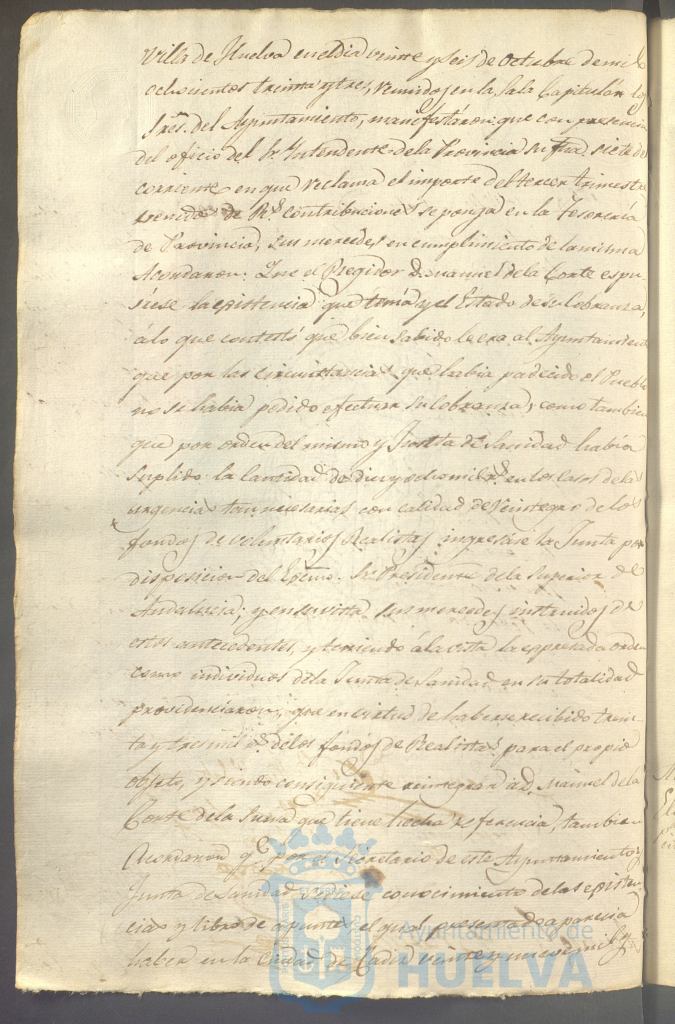 Villa de Huelva en el dia veinte y seis de Octubre de mil
ochocientos treinta y tres, reunidos en la Sala Capitular los
Sres. del Ayuntamiento, manifestaron: que con presencia
del oficio del Sr. Intendente de la Provincia su fha. siete del
corriente en que reclama el importe del tercer trimestre
vencido de Rs. contribuciones se ponga en la Tesoreria
de Provincia, sus mercedes en cumplimiento de la misma
Acordaron: Que el Regidor D. Manuel de la Corte espu-
siese la existencia que tenia y el Estado de su cobranza,
á lo que contestó que bien sabido le era al Ayuntamiento
que por las circunstancias que habia padecido el Pueblo
no se habia podido efectuar su cobranza, como tambien
que por orden del mismo y Junta de Sanidad habia
suplido la cantidad de diez y ocho mil rs. en los casos de las
urgencias tan necesarias con calidad de reintegro de los
fondos de voluntarios Realistas ingresáre la Junta por
disposicion del Exmo. Sr. Presidente de la Superior de
Andalucia; y en su vista sus mercedes instruidos de
estos antecedentes, y teniendo á la vista la expresada orden
como individuos de la Junta de Sanidad en su totalidad
providenciaron, que en virtud de haberse recibido trein-
ta y tres mil rs. de los fondos de Realistas para el propio
objeto, y siendo consiguiente reintegrar á D. Manuel de la
Corte de la suma que tiene hecha referencia, tambien
Acordaron qe. por el Secretario de este Ayuntamiento y
Junta de Sanidad se diese conocimiento de las existen-
cias y libro de apuntes, el qual presentado aparecia
haber en la Ciudad de Cadiz veinte y nueve mil y
Ayuntamiento de
HUELVA